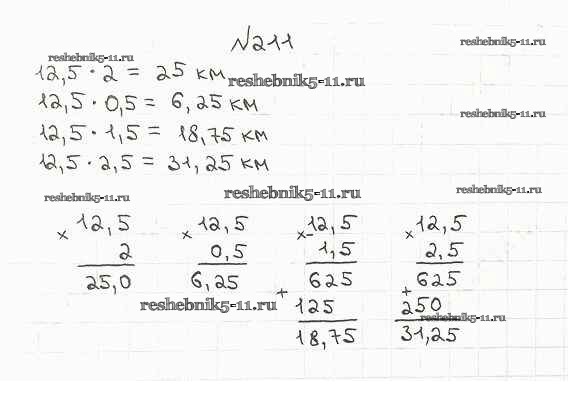 №211
reshebnik5-11.ru
reshebnik5-11.ru
12,5 · 2 = 25 км
reshebnik5-11.ru
12,5 · 0,5 = 6,25 км
reshebnik5-11.ru
12,5 · 1,5 = 18,75 км
12,5 · 2,5 = 31,25 км
reshebnik5-11.ru
reshebnik5-11.ru
reshebnik5-11.ru
× 12,5 × 12,5 × 12,5 × 12,5
2 0,5 1,5 2,5
25,0 6,25 625 625
+ 125 + 250
reshebnik5-11.ru
reshebnik5-11.ru
18,75 31,25